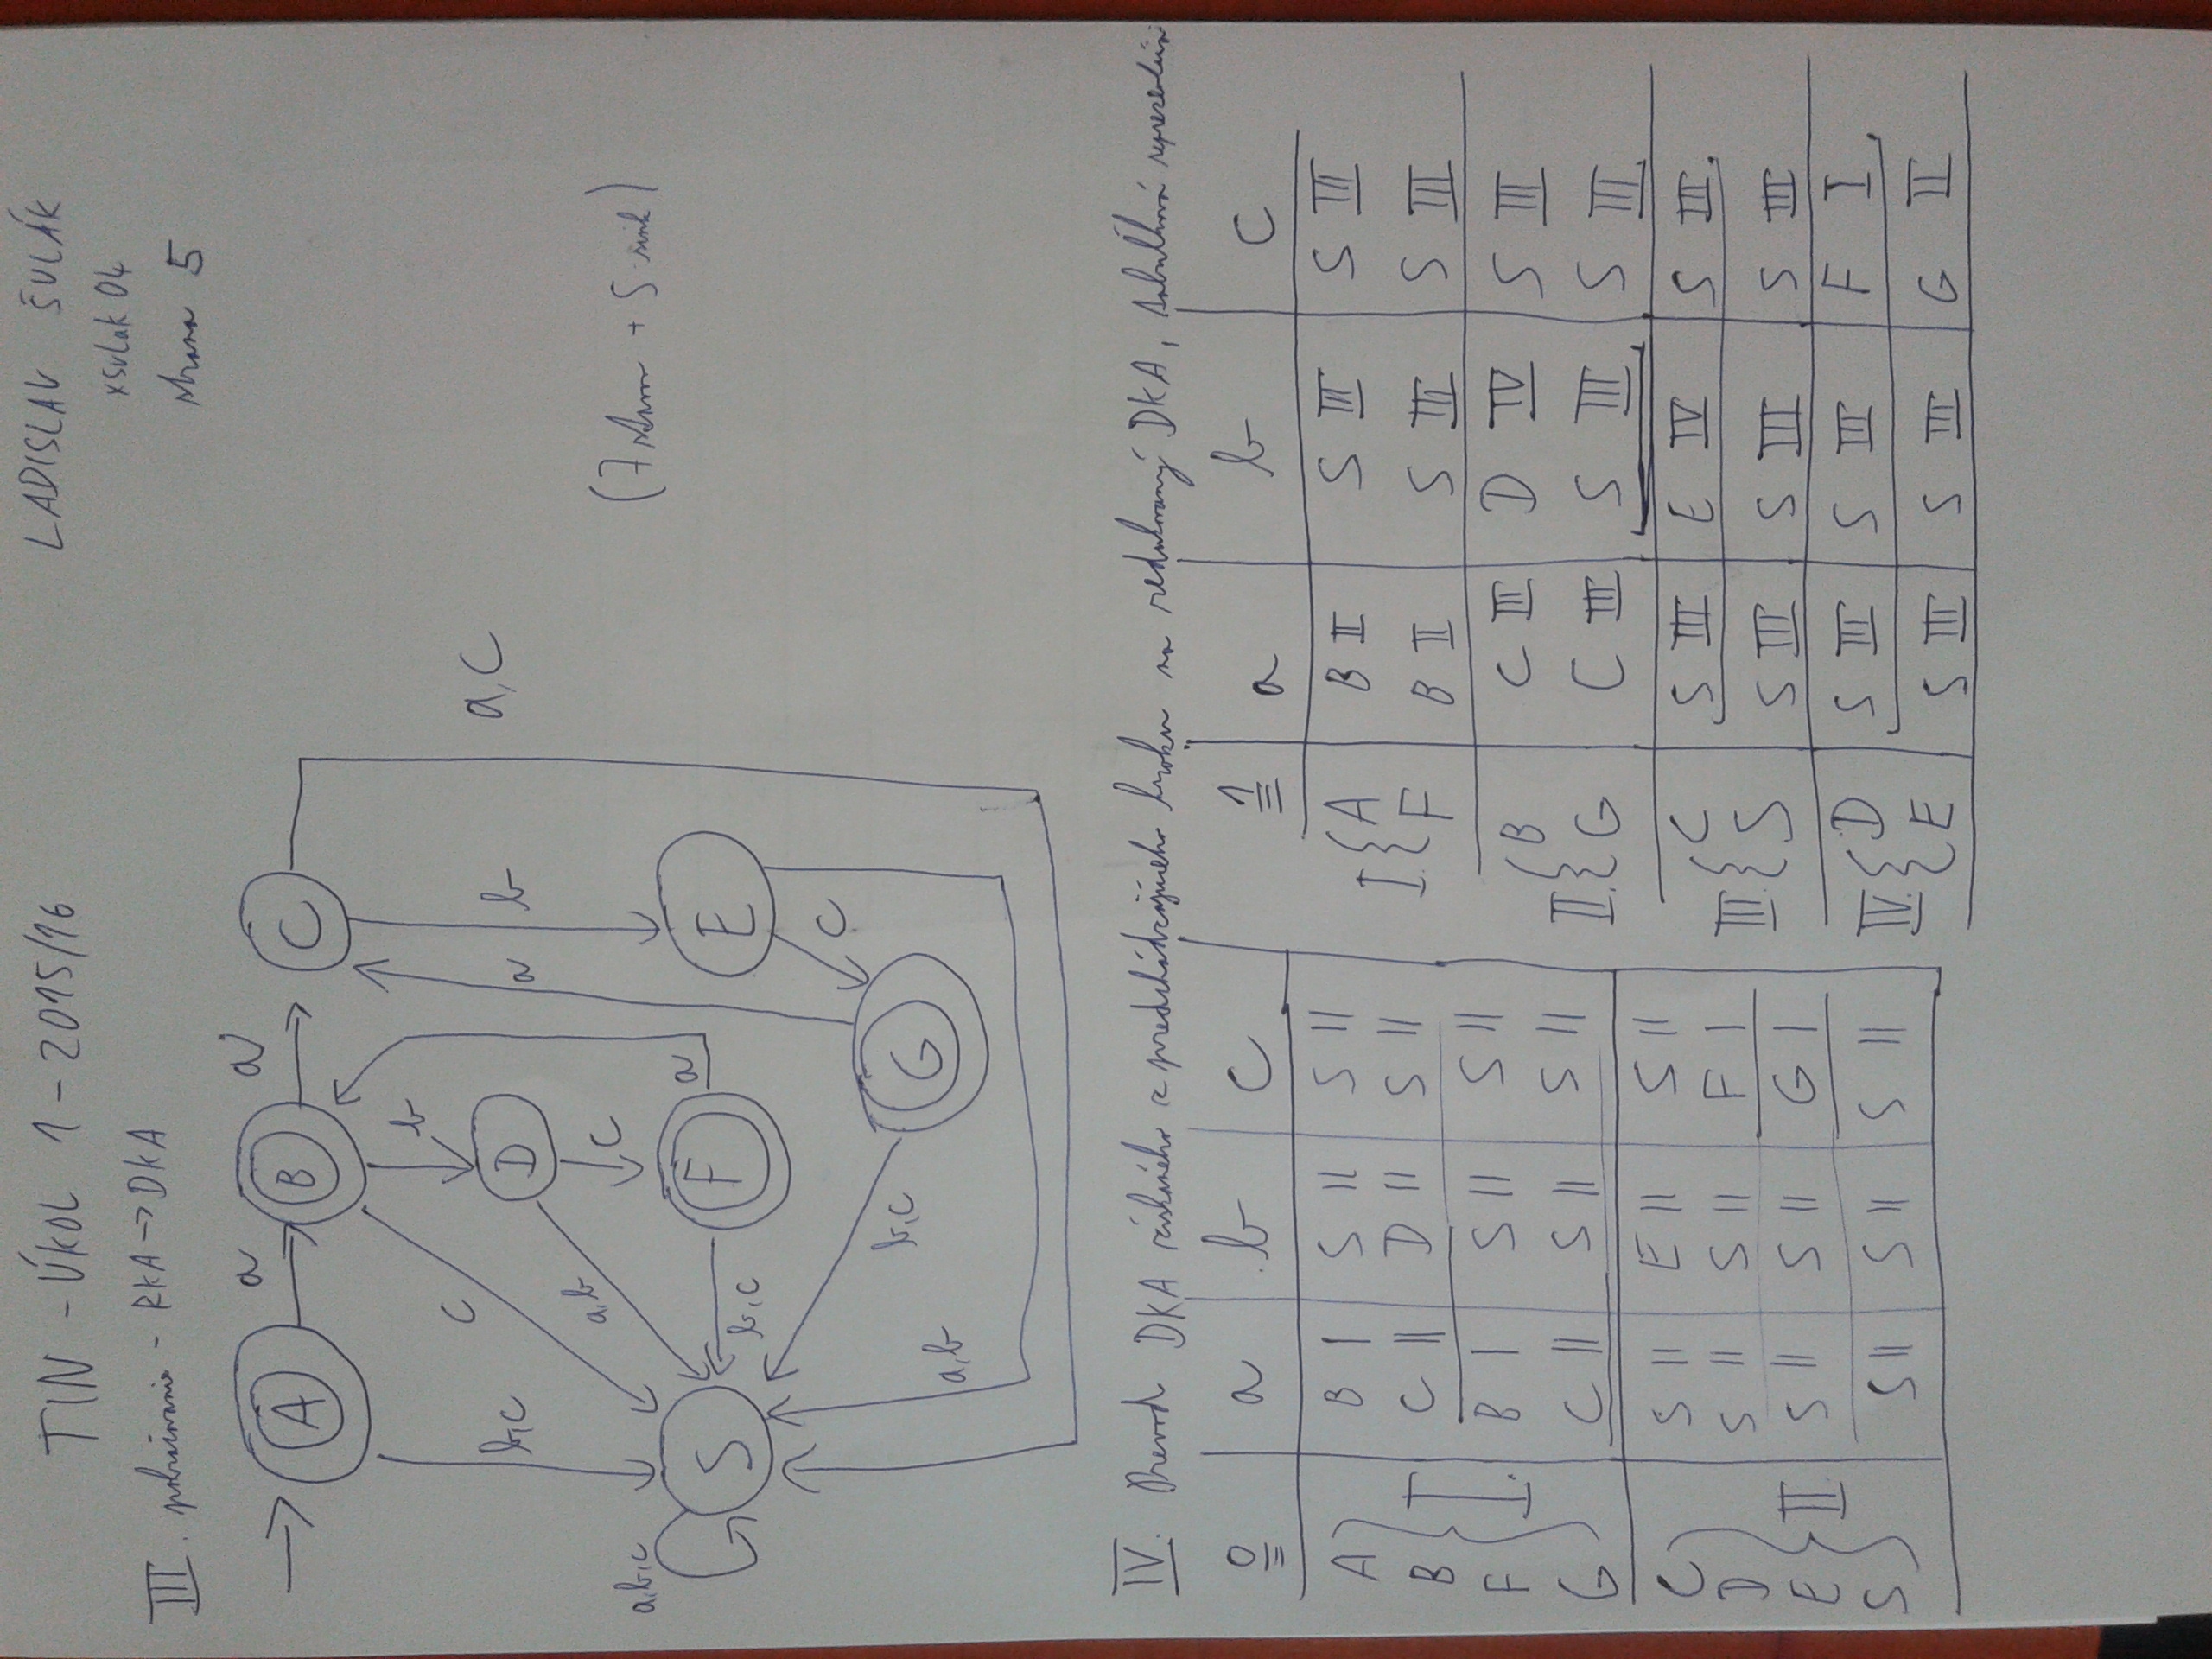 TIN - ÚKOL 1 - 2015/16
LADISLAV ŠULÁK
xsulak04
strana 5
III. pokračovanie - RKA → DKA
A a B a C
b
c
b,c
D
a,b
c
a
b
a,c
a,b,c
S
b,c
F
a
E
c
b,c
G
a,b
(7 stavov + S sink)
IV. Prevod DKA získaného z predchádzajúceho kroku na redukovaný DKA, tabuľková reprezentácia
0≡ a b c
A B I S II S II
B C II D II S II
F B I S II S II
G C II S II S II
I.
C S II E II S II
D S II S II F I
E S II S II G I
S S II S II S II
II
1≡ a b c
I. A B II S III S III
F B II S III S III
II. B C III D IV S III
G C III S III S III
III. C S III E IV S III
S S III S III S III
IV. D S III S III F I
E S III S III G II